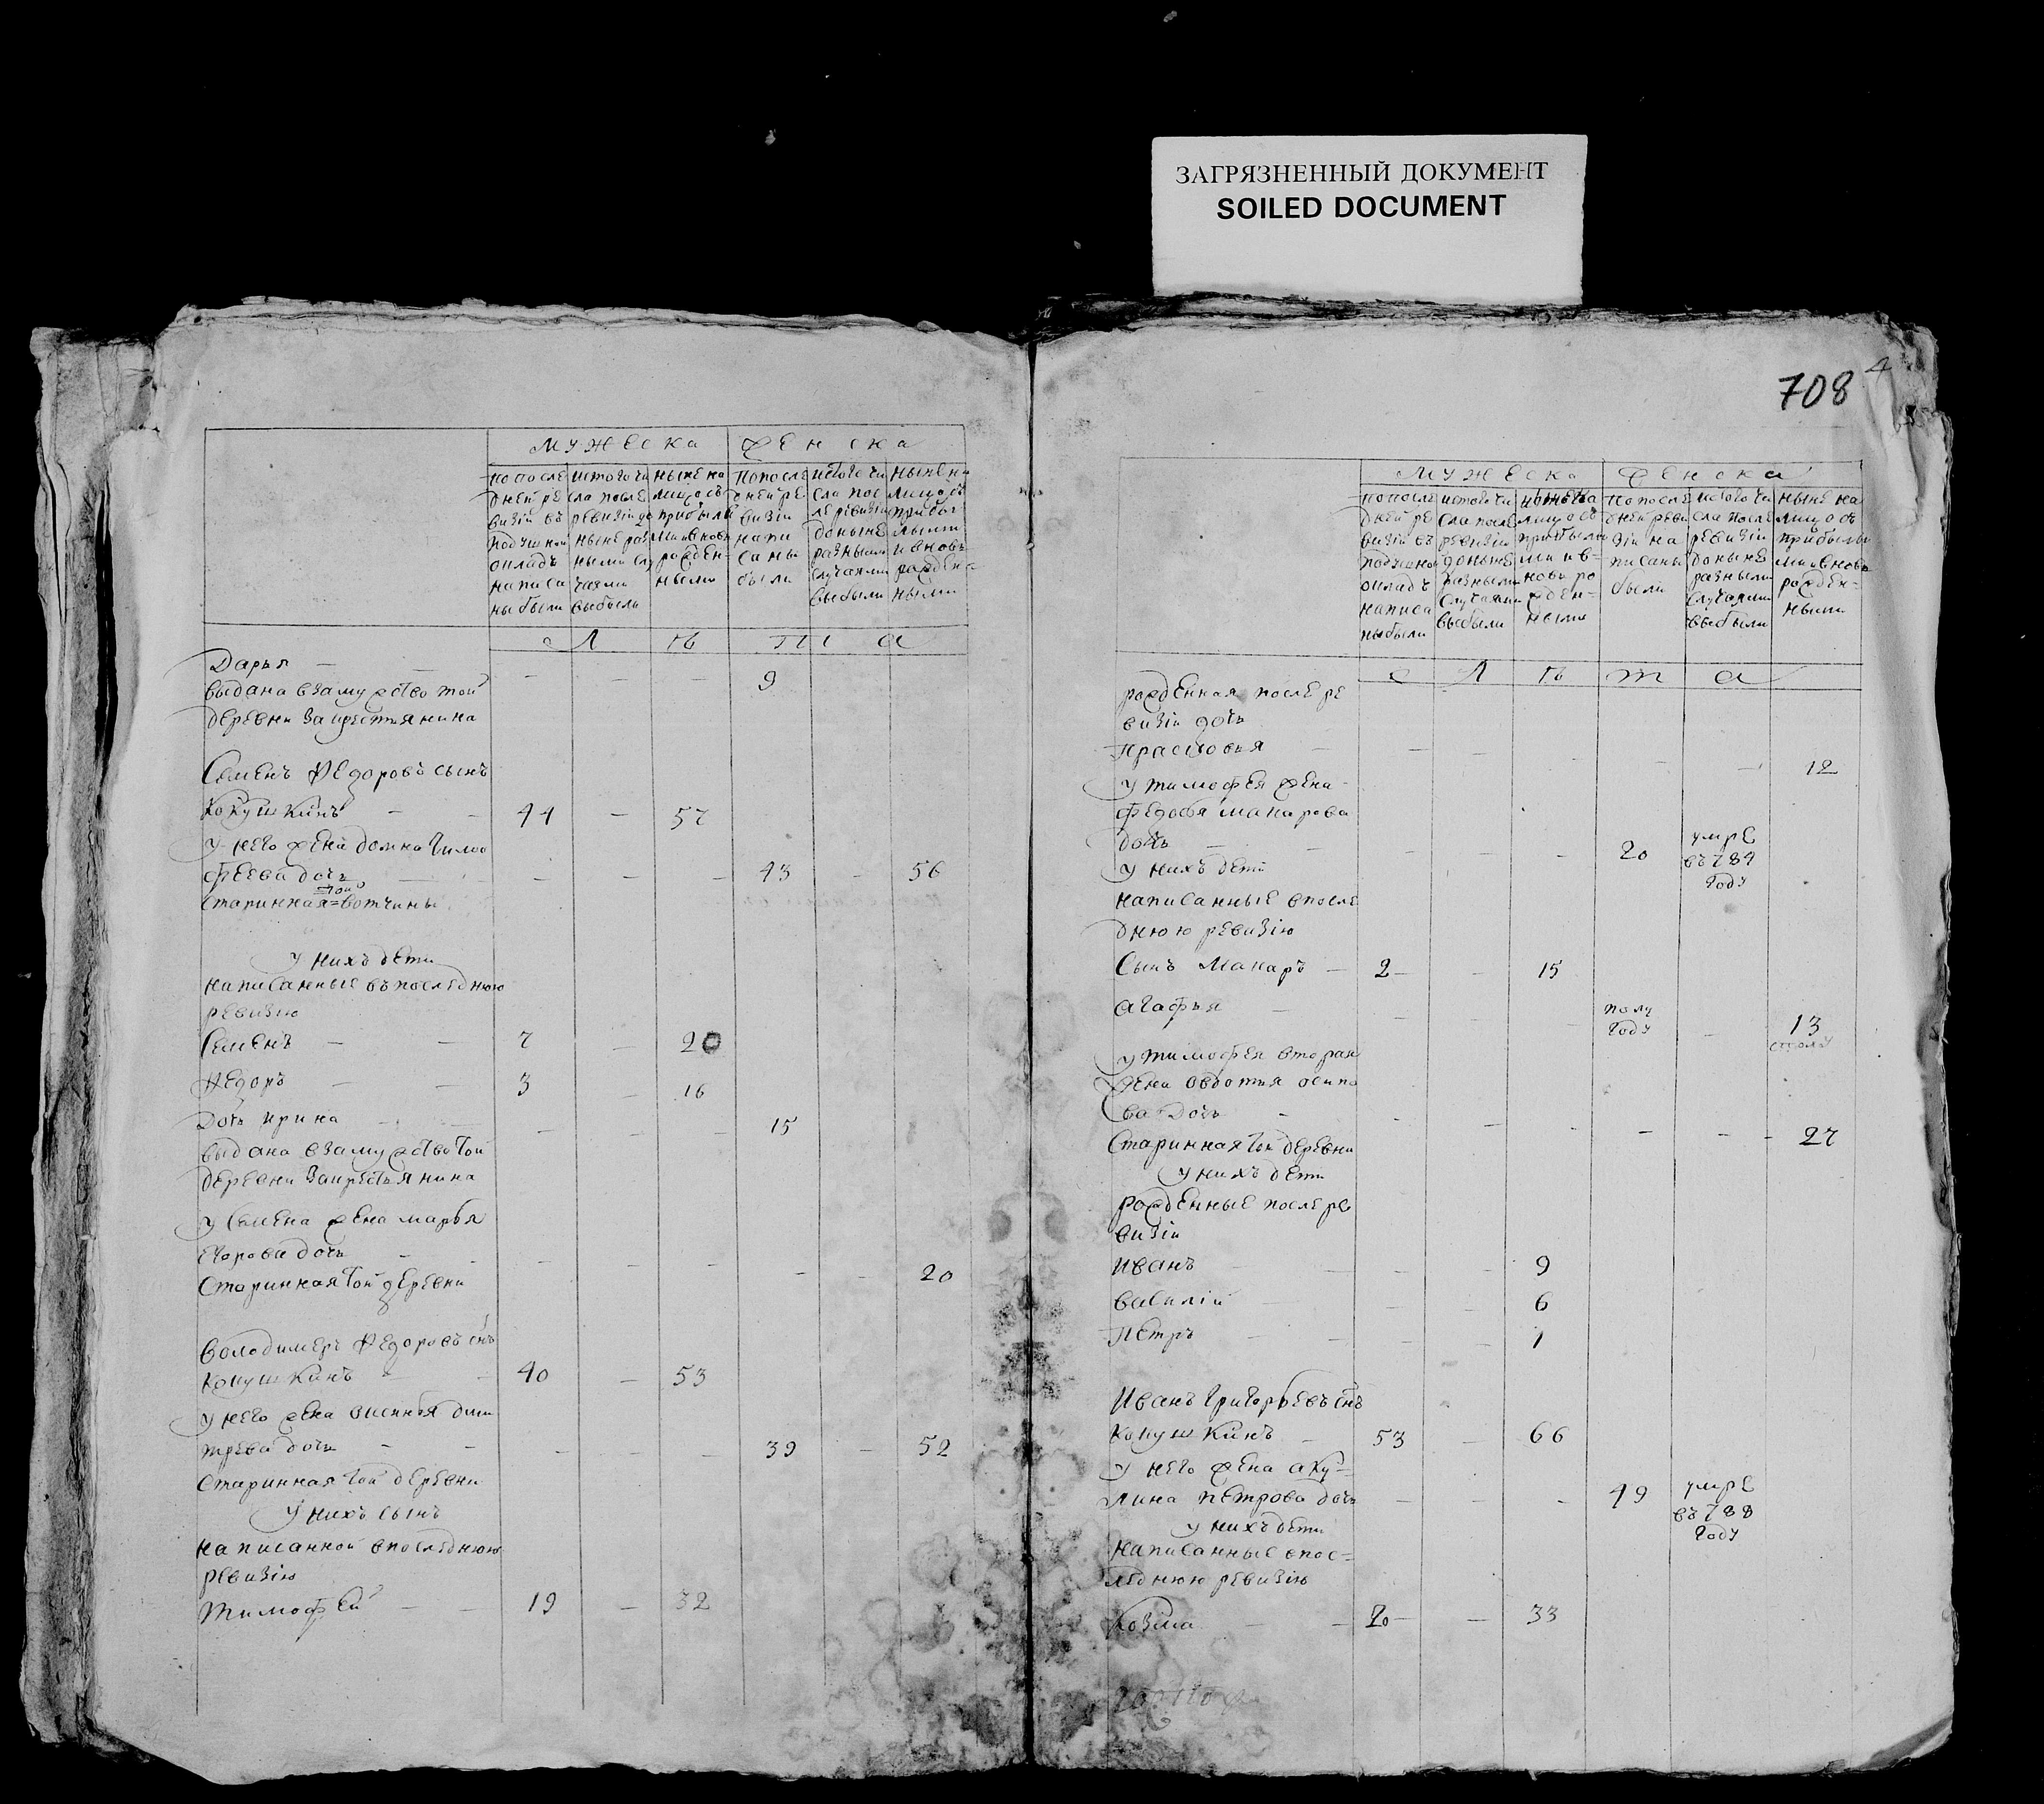 ЗАГРЯЗНЕННЫЙ ДОКУМЕНТ
SOILED DOCUMENT
мужеска женска
по после дней ре визiи въ подушной окладъ написа ны были
истого чи сла после ревизiи до ныне раз ными слу чаями выбыло
ныне на лицо съ прибылы ми и вновь рожден ными
по после дней ре визiи напи саны были
истого чи сла пос ле ревизiи доныне разными случаями выбыли
ныне на лицо съ прибы лыми и вновь рожден ными
лѣта
Дарья — — — — — 9
выдана взамужство той
деревни за крестьянина
Семенъ Федоровъ сынъ
Кокушкинъ — — 44 — 57
у него жена домна тимо
феева дочь — — — — 43 — 56
той
старинная = вотчины
у нихъ дети
написанные въ последнюю
ревизiю
Семенъ — — 7 — 20
Федоръ — — 3 — 16
дочь ирина — — — — — 15
выдана взамужство той
деревни за крестьянина
у Семена жена марья
егорова дочь — — — — — — 20
старинная той деревни
володимеръ Федоровъ снъ
Кокушкинъ — — 40 — 53
у него жена аксинья дми
трева дочь — — — — — 39 — 52
старинная той деревни
у нихъ сынъ
написанной впоследнюю
ревизiю
тимофей — — 19 — 32
708
4
мужеска женска
по после дней ре визiи въ подушной окладъ написа ны были
истого чи сла после ревизiи доныне разными случаями выбыли
ныне на лицо съ прибылы ми и в- новь ро жден- ными
по после дней реви зiи на писаны были
истого чи сла после ревизiи доныне разными случаями выбыли
ныне на лицо съ прибылы ми и вновь рожден- ными
лѣта
рожденная после ре
визiи дочь
Прасковья — — — — — 12
у тимофея жена
федосья макарова
дочь — — — — 20 умре въ 784 году
у нихъ дети
написанные впосле
днюю ревизiю
Сынъ Макаръ — 2 — — 15
агафья — — — — полу году — 13
у тимофея вторая
жена авдотья осипо
ва дочь — — — — — — 27
старинная той деревни
у нихъ дети
рожденные после ре
визiи
иванъ — — — 9
василiй — — — 6
Петръ — — — 1
Иванъ григорьевъ снъ
Кокушкинъ — 53 — 66
у него жена аку-
лина петрова дочь — — — 49 умре въ 788 году
у нихъ дети
написанные впос=
леднюю ревизiю
козма — — 20 — — 33